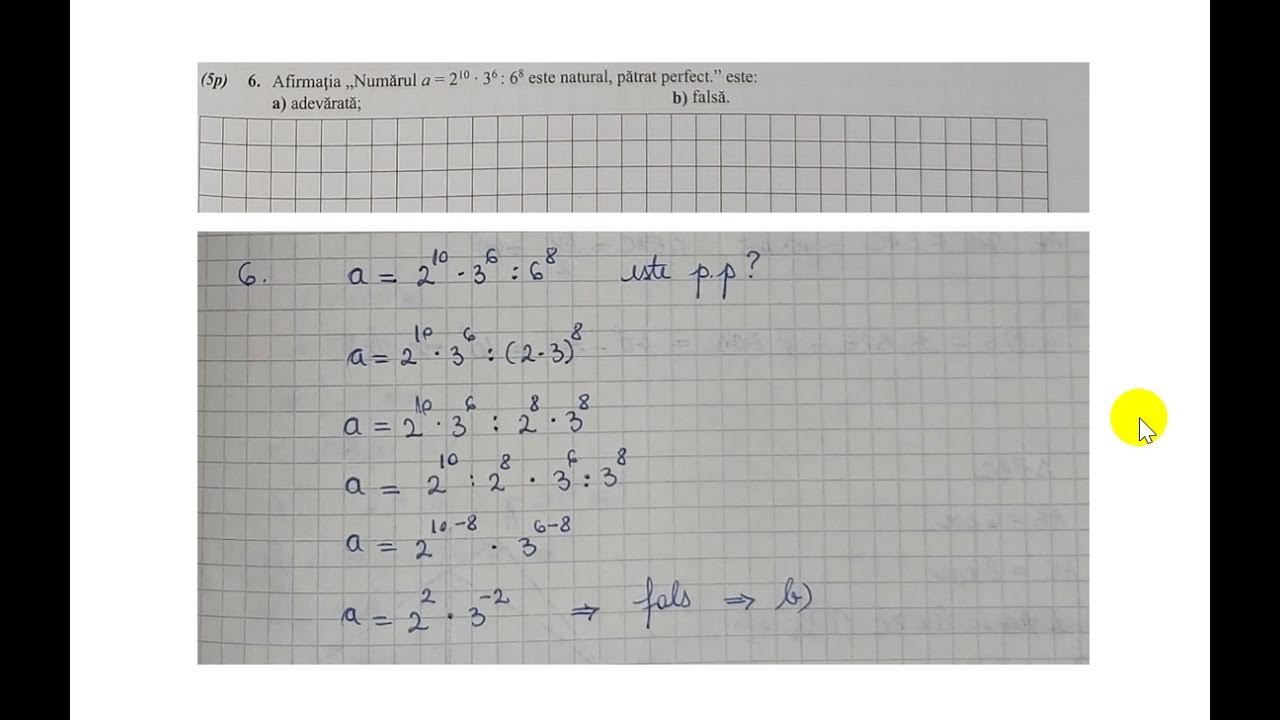 (5p) 6. Afirmaţia „Numărul a = 2¹⁰ · 3⁶ : 6⁸ este natural, pătrat perfect.” este:
a) adevărată; b) falsă.
6. a = 2¹⁰ · 3⁶ : 6⁸ este p.p?
a = 2¹⁰ · 3⁶ : (2·3)⁸
a = 2¹⁰ · 3⁶ : 2⁸ · 3⁸
a = 2¹⁰ : 2⁸ · 3⁶ : 3⁸
a = 2¹⁰⁻⁸ · 3⁶⁻⁸
a = 2² · 3⁻² ⇒ fals ⇒ b)